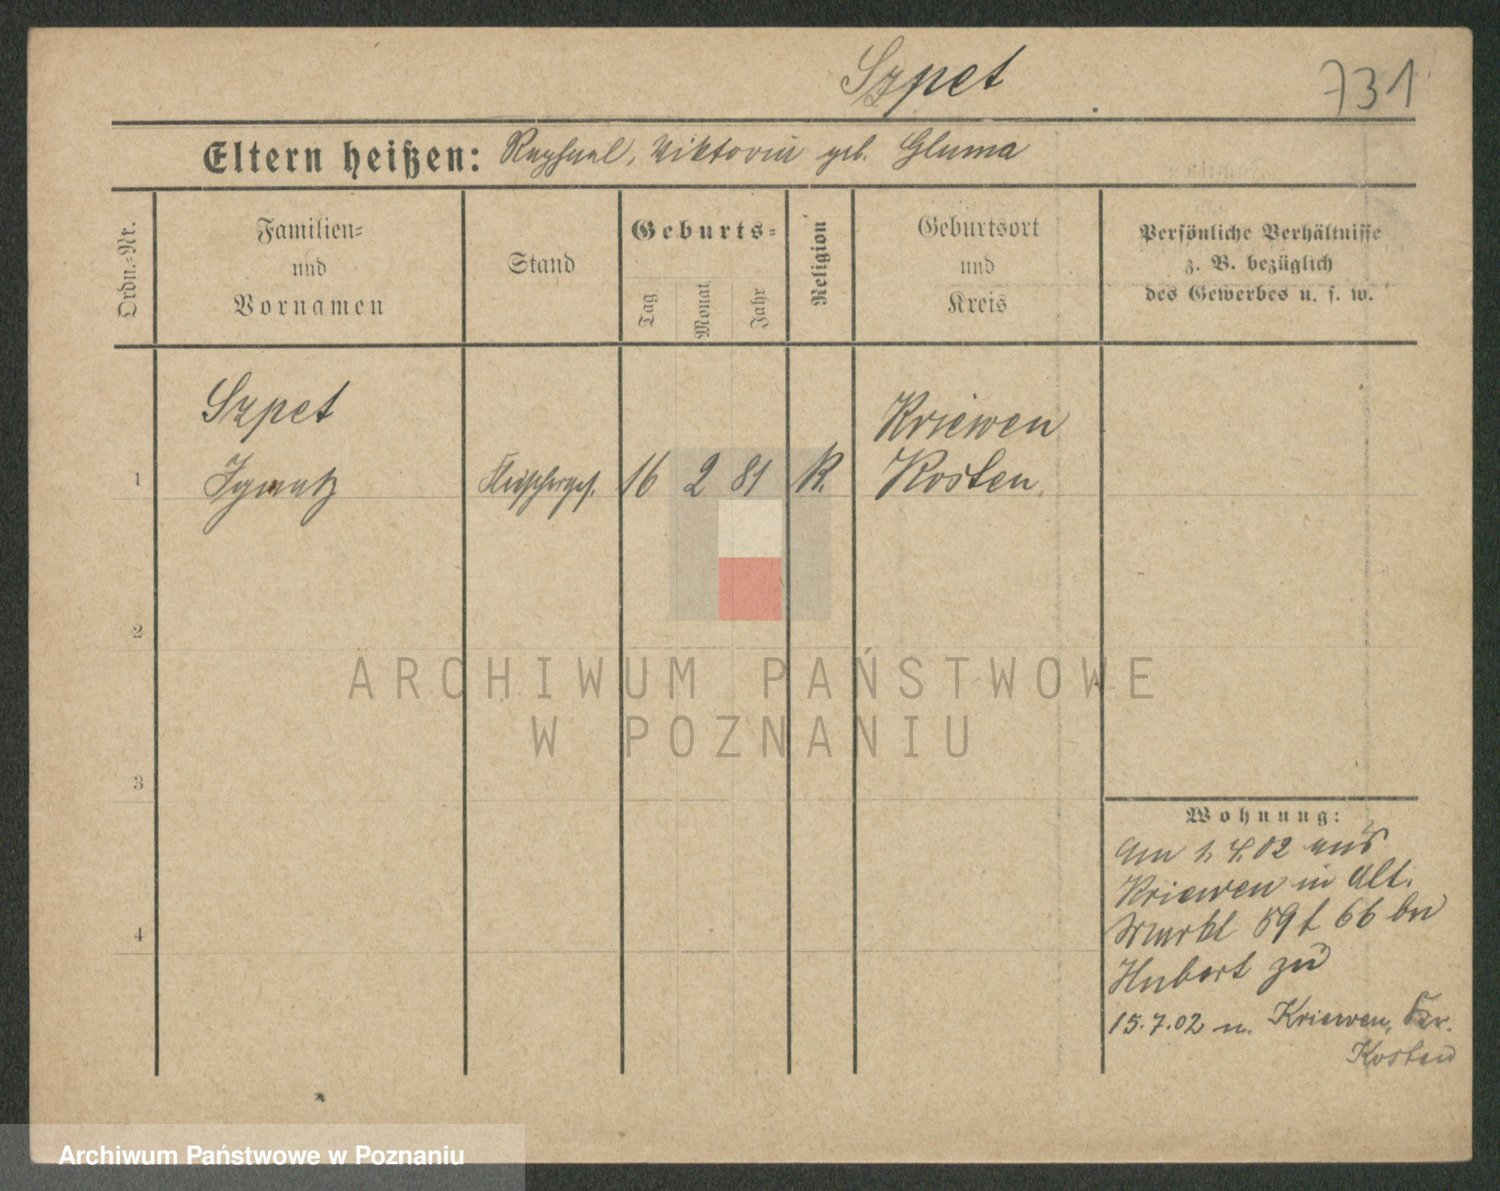 Szpet
731
Eltern heißen: Raphael, Viktoria geb. Gluma
Ordn.-Nr.
Familien-
und
Vornamen
Stand
Geburts-
Tag
Monat
Jahr
Religion
Geburtsort
und
Kreis
Persönliche Verhältnisse
z. B. bezüglich
des Gewerbes u. s. w.
Szpet
Kriewen
1
Ignatz
Fleischerges.
16
2
81
K.
Kosten
2
3
4
Wohnung:
Am 1.4.02 aus
Kriewen in Alt.
Markt 59 66 bei
Hubert zu
15.7.02 n. Kriewen, Kr.
Kosten
ARCHIWUM PAŃSTWOWE
W POZNANIU
Archiwum Państwowe w Poznaniu